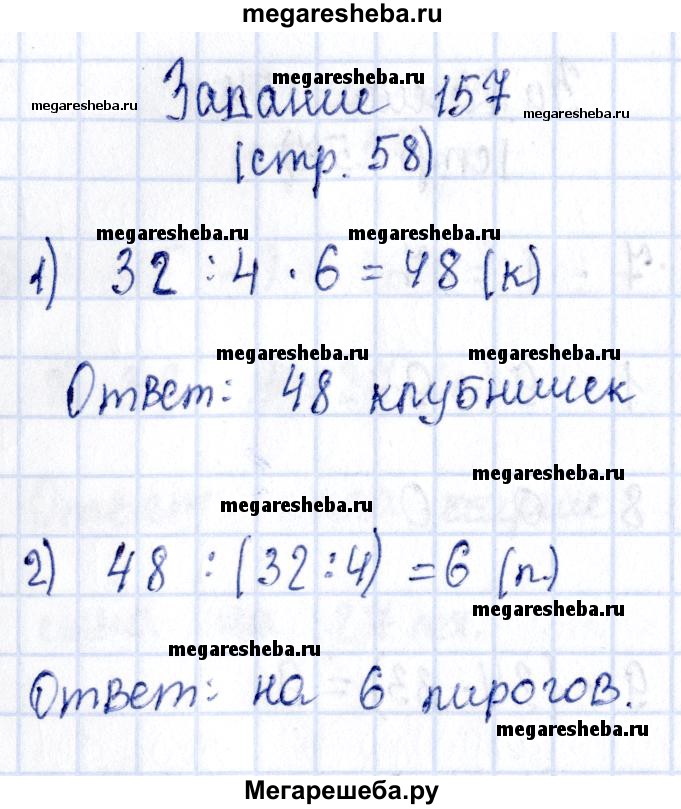 megaresheba.ru
megaresheba.ru
megaresheba.ru Задание 157 megaresheba.ru
(стр. 58)
megaresheba.ru megaresheba.ru
1) 32 : 4 · 6 = 48 (к)
megaresheba.ru megaresheba.ru
Ответ: 48 клубничек
megaresheba.ru
megaresheba.ru
2) 48 : (32 : 4) = 6 (п.)
megaresheba.ru
megaresheba.ru
Ответ: на 6 пирогов.
megaresheba.ru
Мегарешеба.ру